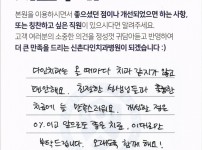 본원을 이용하시면서 좋으셨던 점이나 개선되었으면 하는 사항,
또는 칭찬하고 싶은 직원이 있으시다면 알려주세요.
고객 여러분의 소중한 의견을 정성껏 귀담아듣고 반영하여
더 큰 만족을 드리는 신촌다인치과병원이 되겠습니다 :)
다인치과는 올 때마다 치과 같지가 않고
편안해요. 친절한 선생님들과 훌륭한
치료에 늘 만족스러워요. 개선할 점은
0% 이고 앞으로도 좋은 치료, 이대로만
부탁드립니다. 오래도록 함께 해요!